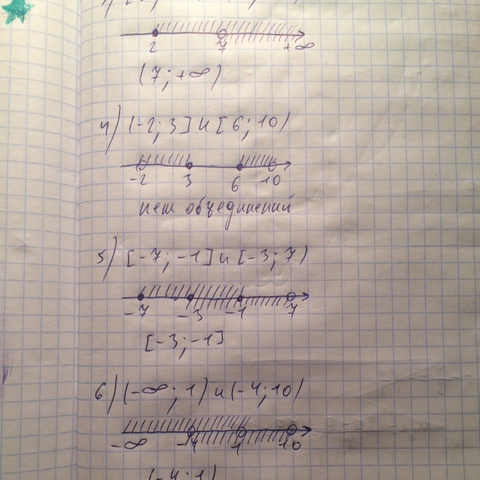 2 7 +∞
(7; +∞)
4) (-2; 3] и [6; 10)
-2 3 6 10
нет объединений
5) [-7; -1] и [-3; 7)
-7 -3 -1 7
[-3; -1]
6) (-∞; 1) и (-4; 10)
-∞ -4 1 10
(-4; 1)